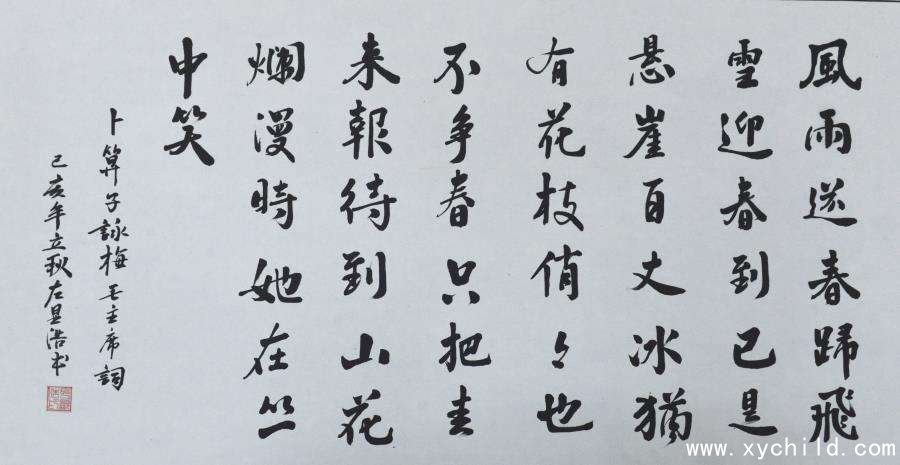 風雨送春歸飛
雪迎春到已是
悬崖百丈冰猶
有花枝俏々也
不争春只把春
来報待到山花
爛漫時她在丛
中笑
卜算子詠梅 毛主席詞
己亥年立秋左浩书
www.xychild.com